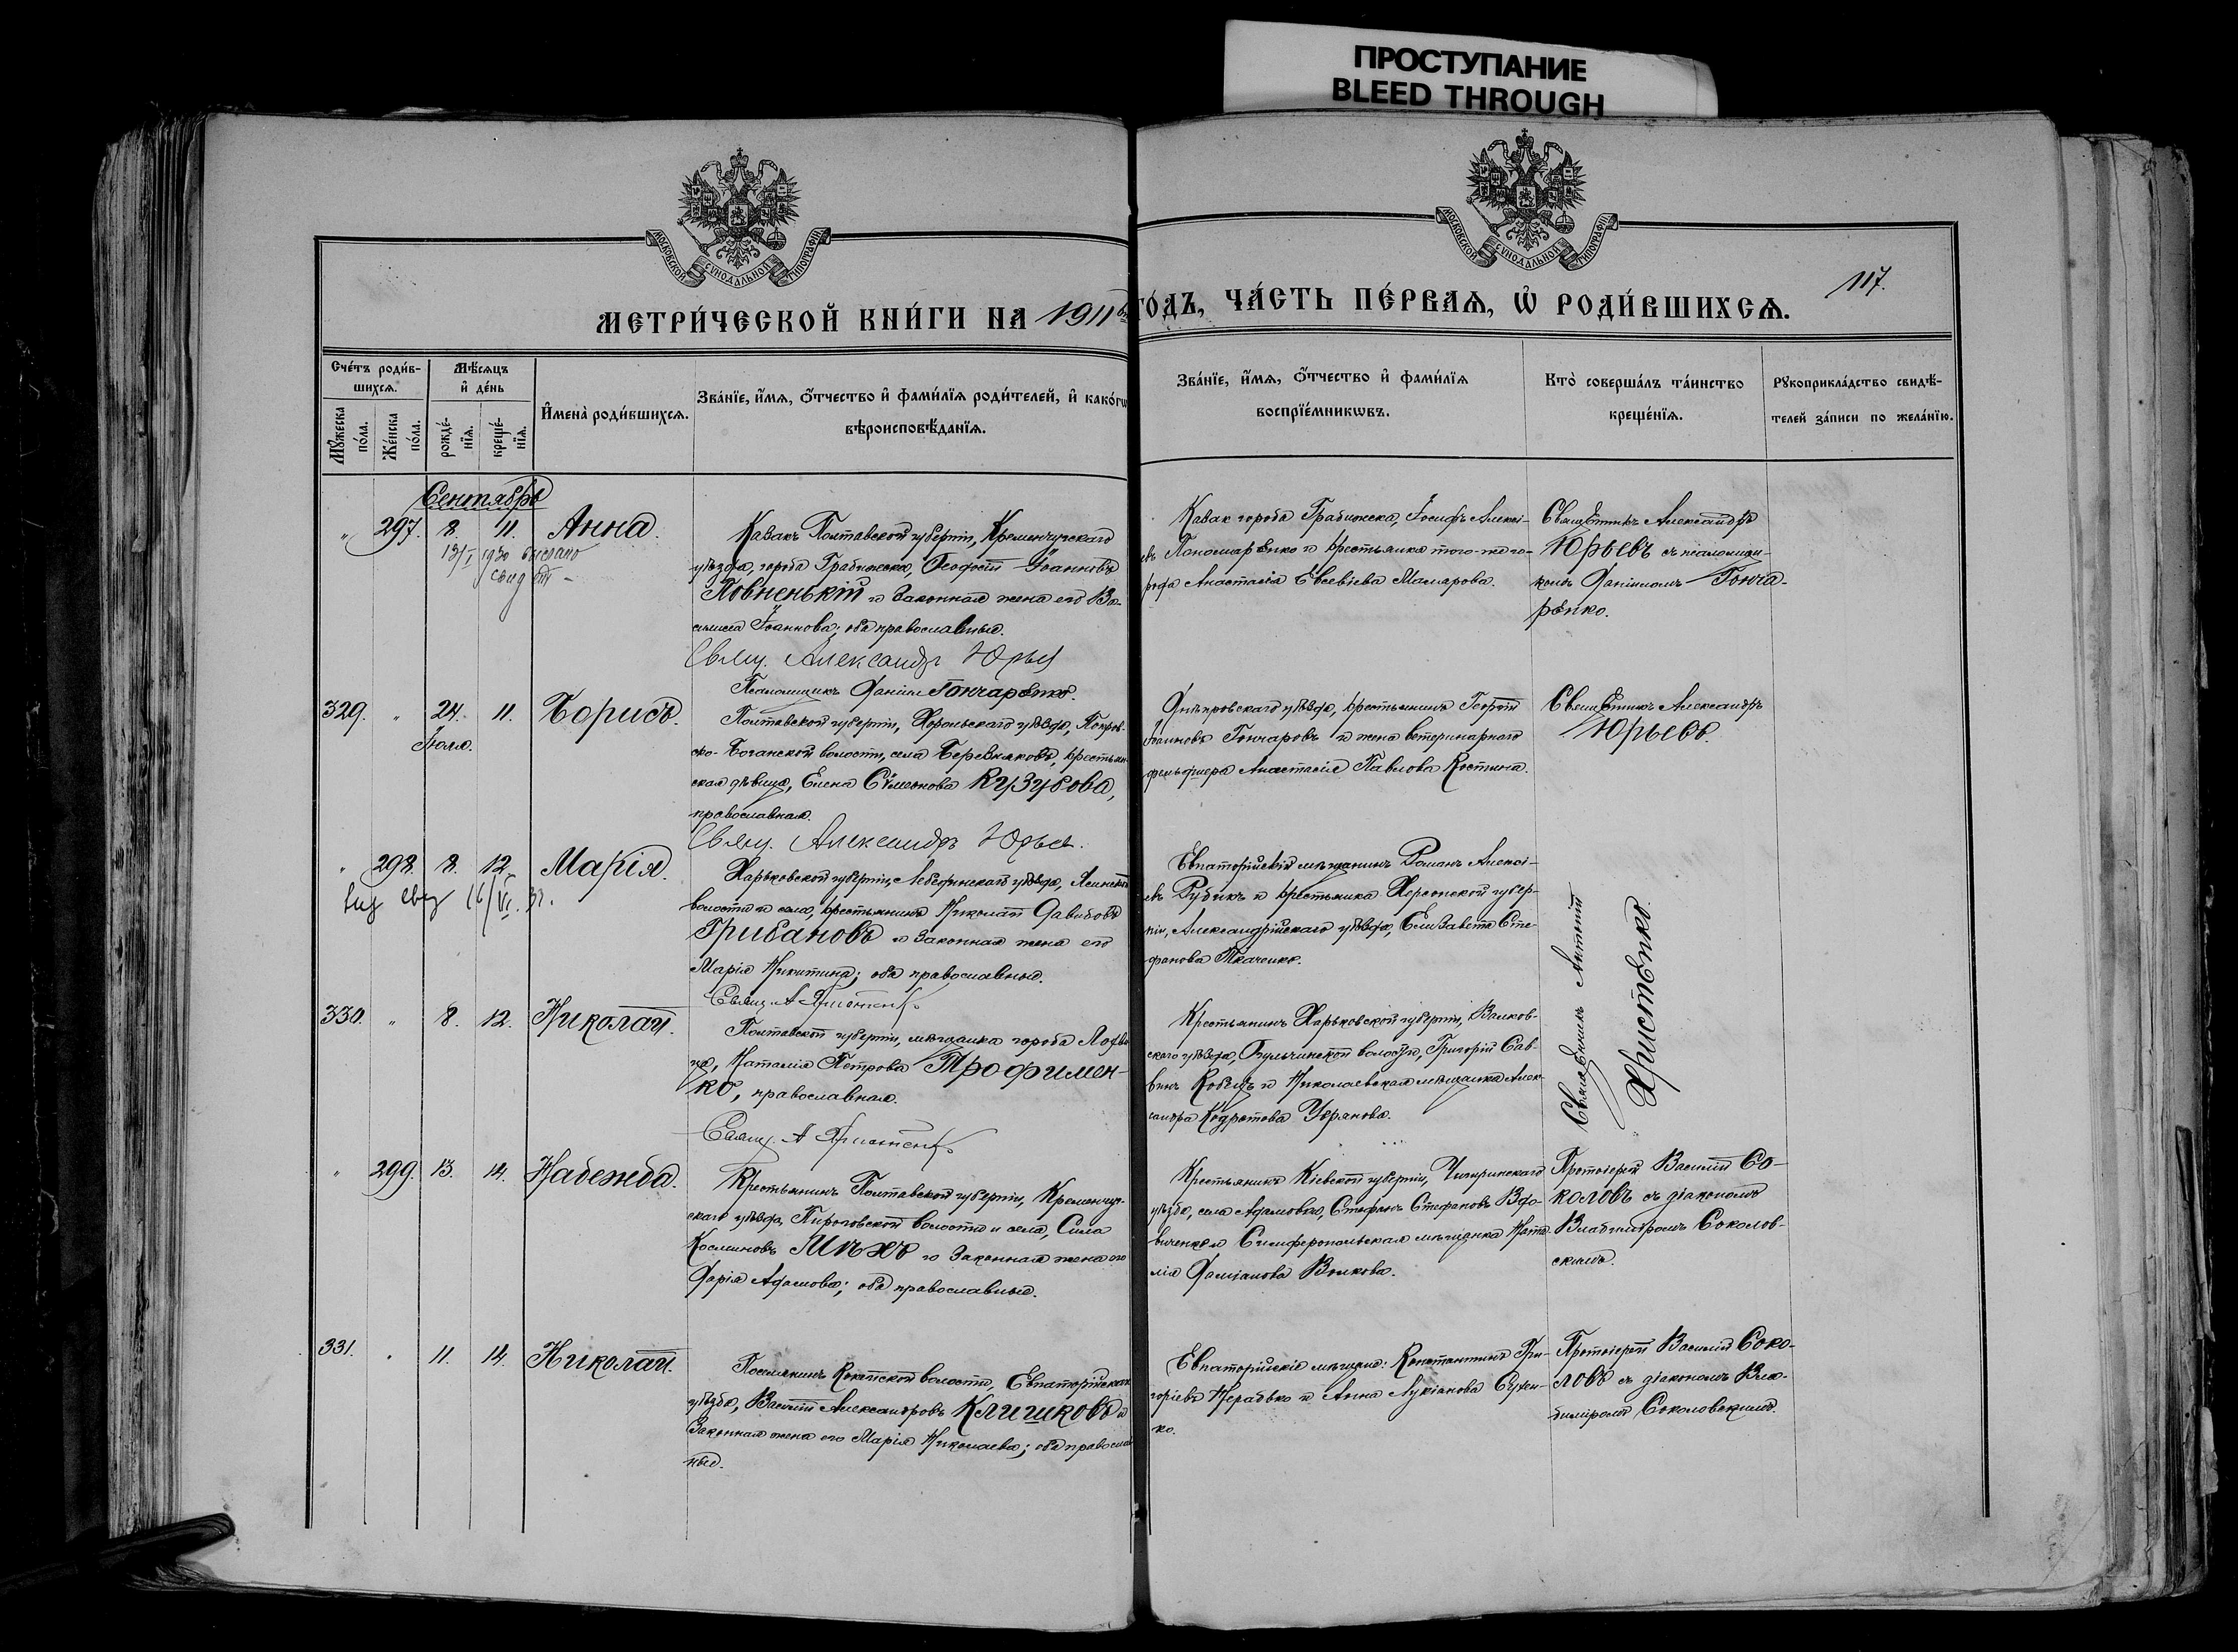 ПРОСТУПАНИЕ
BLEED THROUGH
МОСКОВСКОЙ СѴНОДАЛЬНОЙ ТИПОГРАФІИ
МОСКОВСКОЙ СѴНОДАЛЬНОЙ ТИПОГРАФІИ
117.
МЕТРИ́ЧЕСКОЙ КНИ́ГИ НА 1911й ГО́ДЪ, ЧА́СТЬ ПЕ́РВАѦ, Ѡ҆ РОДИ́ВШИХСѦ.
Сче́тъ роди́в-
шихсѧ.
Мꙋ́жеска по́ла.
Же́нска по́ла.
Мѣ́сѧцъ
и҆ де́нь
рожде́-
нїѧ.
креще́-
нїѧ.
И҆мена̀ роди́вшихсѧ.
Зва́нїе, и҆́мѧ, ѻ҆́тчество и҆ фами́лїѧ роди́телей, и҆ како́гѡ
вѣроисповѣ́данїѧ.
Зва́нїе, и҆́мѧ, ѻ҆́тчество и҆ фами́лїѧ
воспрїе́мникѡвъ.
Кто̀ соверша́лъ та́инство
креще́нїѧ.
Рꙋкоприкла́дство свидѣ́-
телей за́писи по жела́нїю.
Сентябрь
" 297. 8. 11. Анна.
13/I 1930 выслано
свид
Казакъ Полтавской губерніи, Кременчугскаго
уѣзда, города Градижска, Ѳеодосій Іоанновъ
Повненькій и законная жена его Ва-
силиса Іоаннова; оба православные.
Свящ. Александръ Юрьев
Псаломщикъ Даніилъ Гончаренко.
Казак города Градижска, Іосифъ Алексі-
евъ Пономаренко и крестьянка того-же го-
рода Анастасія Евсевіева Макарова.
Священникъ Александръ
Юрьевъ съ псаломщи-
комъ Даніиломъ Гонча-
ренко.
329. " 24. 11. Борисъ.
Іюля.
Полтавской губерніи, Хорольскаго уѣзда, Покров-
ско-Богачской волости, села Березняковъ, крестьян-
ская дѣвица, Елена Сѵмеонова Кузубова,
православная.
Свящ. Александръ Юрьев.
Днѣпровскаго уѣзда, крестьянинъ Георгій
Іоанновъ Гончаровъ и жена ветеринарнаго
фельдшера Анастасія Павлова Костина.
Священникъ Александръ
Юрьевъ.
" 298. 8. 12. Марія.
16/VI.
Харьковской губерніи, Лебединскаго уѣзда,
волости и села, крестьянинъ Николай Давидовъ
Грибановъ и законная жена его
Марія Никитина; оба православные.
Свящ. А Христенко
Евпаторійскій мѣщанинъ Романъ Алексі-
евъ Рубикъ и крестьянка Херсонской губер-
ніи, Александрійскаго уѣзда, Елизавета Сте-
фанова Ткаченко.
Священникъ Антоній
Христенко.
330. " 8. 12. Николай.
Полтавской губерніи, мѣщанка города Лохви-
цы, Наталія Петрова Трофимен-
ко, православная.
Свящ. А Христенко
Крестьянинъ Харьковской губерніи, Валков-
скаго уѣзда, волости, Григорій Сав-
винъ и Николаевская мѣщанка Алек-
сандра
" 299. 13. 14. Надежда.
Крестьянинъ Полтавской губерніи, Кременчуг-
скаго уѣзда, Пироговской волости и села, Сила
Космановъ и законная жена его
Дарія Адамова; оба православные.
Крестьянинъ Кіевской губерніи, Чигиринскаго
уѣзда, села Адамовки, Стефанъ Стефановъ Вдо-
виченко и Симферопольская мѣщанка Ната-
лія Даміанова Волкова.
Протоіерей Василій Со-
коловъ съ діакономъ
Владиміромъ Соколов-
скимъ.
331. " 11. 14. Николай.
Поселянинъ волости, Евпаторійскаго
уѣзда, Василій Александровъ Клишковъ и
законная жена его Марія Николаева; оба православ-
ные.
Евпаторійскіе мѣщане: Константинъ Гри-
горіевъ и Анна Лукіанова
ко.
Протоіерей Василій Соко-
ловъ съ діакономъ Вла-
диміромъ Соколовскимъ.